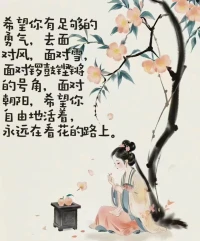 希望你有足够的
勇气，去面
对风，面对雪，
面对锣鼓铿锵
的号角，面对
朝阳，希望你
自由地活着，
永远在看花的路上。